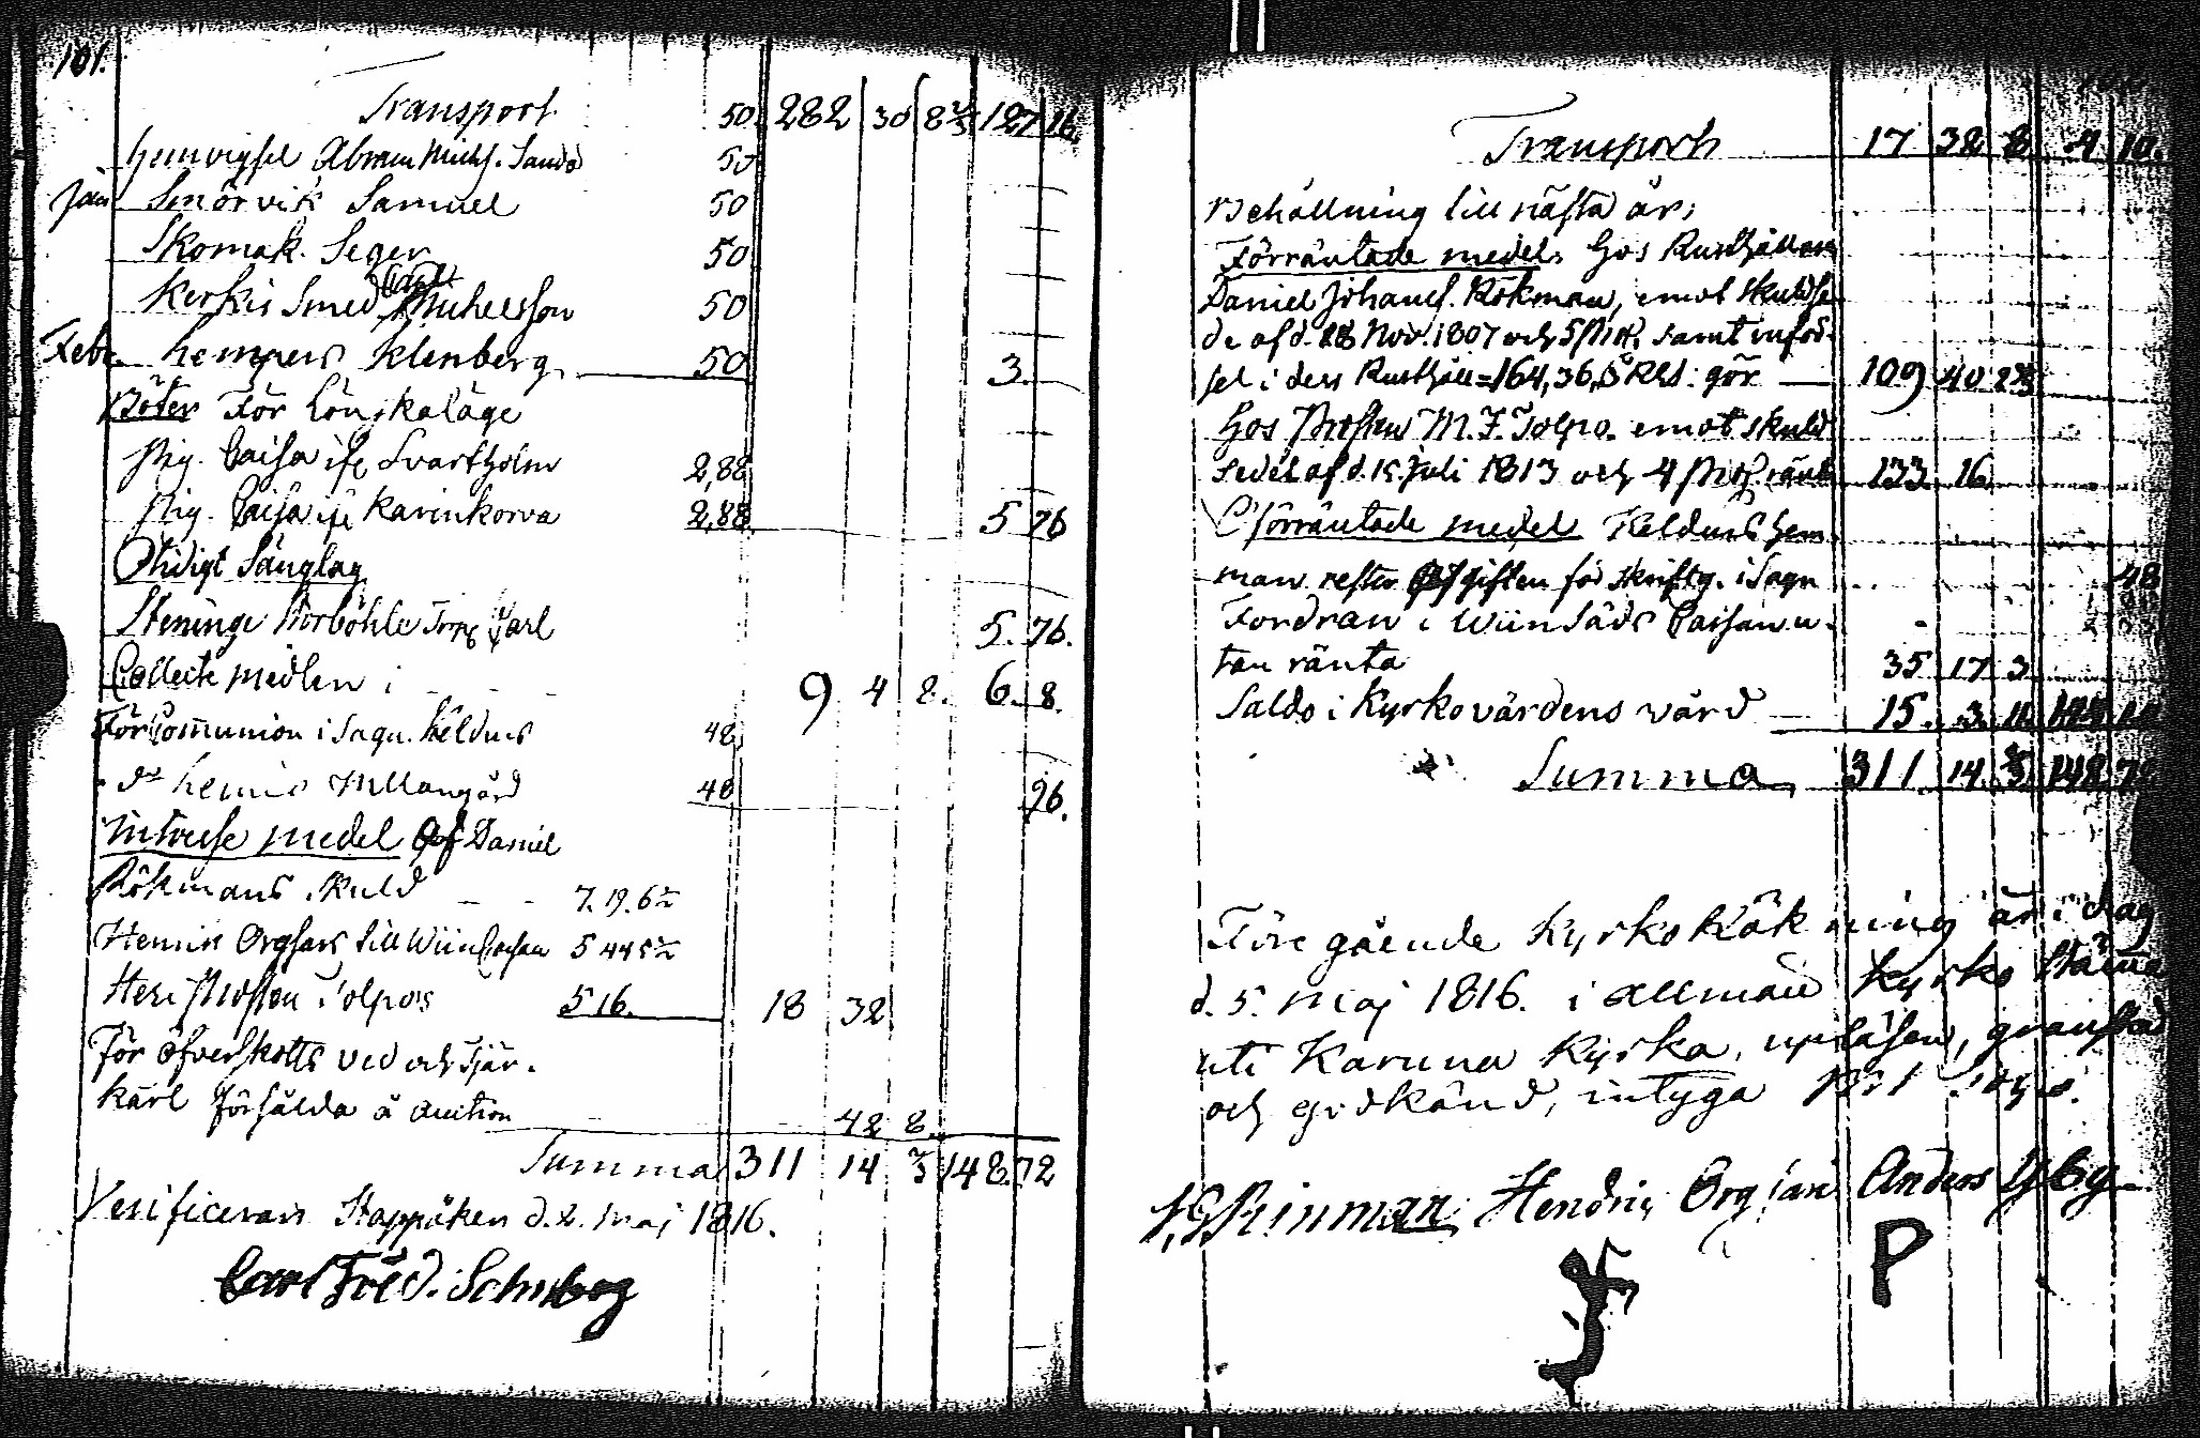 101.
Transport 50. 282 30 8 2/3 127 16.
Abram Michs. Sandö 50
Jan Smörvik Samuel 50
Skomak. Seger 50
Carl
Kerkis Smed Michelsson 50
Febr. Klenberg 50 3.
Böter För
Pig. Caisa ifr Svartholm 2,88
Pig. Caisa ifr Karinkorva 2,88 5 76
Otidigt Sänglag
Steninge Norböhle Torp Carl 5. 76.
Collecte medlen i 9 4 8. 6. 8.
För Communion i Sagu. Keldnis 48
do Mellangård 48 96.
Intresse medel Af Daniel
Rökmans skuld 7. 19. 6 1/2
Henrik Orgsars till Wiin Cassan 5 44 5 1/2
Herr Prosten Tolpos 5 16. 18 32
För öfverskotts ved och Tjär-
kärl försålda å auction 42 8.
Summa 311 14 2/3 148. 72
Verificerar Stappåken d. 2. Maj 1816.
Carl Fred.
Transport 17 32 8 4 10.
Behållning till nästa år;
Förräntade medel. Hos Rusthållaren
Daniel Johanss. Rökman, emot Skuldse-
del af d. 28 Nov. 1807 och 5 Pro Ct, samt införd-
sel i dess Rusthåll = 164, 36, 8 Rd: gör 109 40 2 2/3
Hos Prosten M. F. Tolpo. emot skuld
sedel af d. 15. Juli 1813 och 4 Pro Ct. ränta 133 16
Oförräntade medel Keldnis hem-
man rester afgiften för skriftg. i Sagu 48
Fordran i Wiinsäds Cassan u-
tan ränta 35 17 3
Saldo i Kyrkovärdens vård 15. 3. 11
Summa 311. 14. 2/3 148. 72
Föregående Kyrko Räkning är i dag
d. 5. Maj 1816. i allmän Kyrko Stämma
uti Karuna Kyrka, uplåsen, granskad
och godkänd, intyga
Hendric Orgsar Anders Yby
P